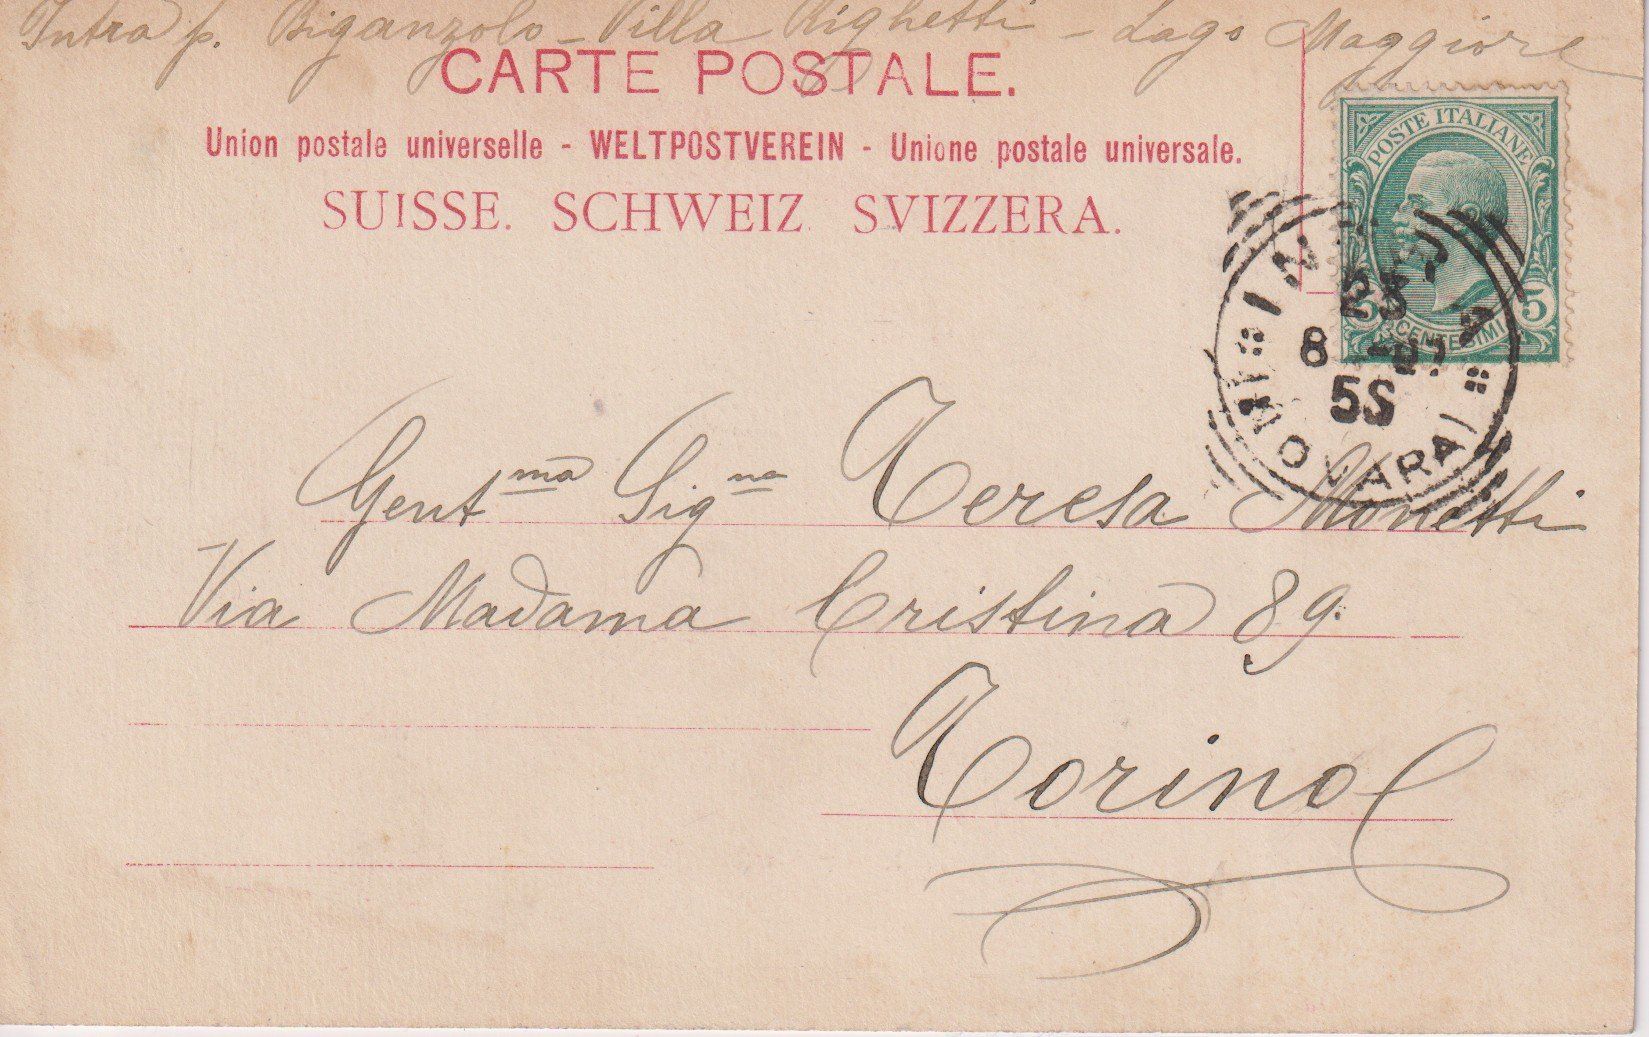 Intra p. Biganzolo - Villa Righetti - Lago Maggiore
CARTE POSTALE.
Union postale universelle - WELTPOSTVEREIN - Unione postale universale.
SUISSE. SCHWEIZ SVIZZERA.
POSTE ITALIANE
5 CENTESIMI 5
23
8
Gentma Signa Teresa Monetti
Via Madama Cristina 89.
Torino